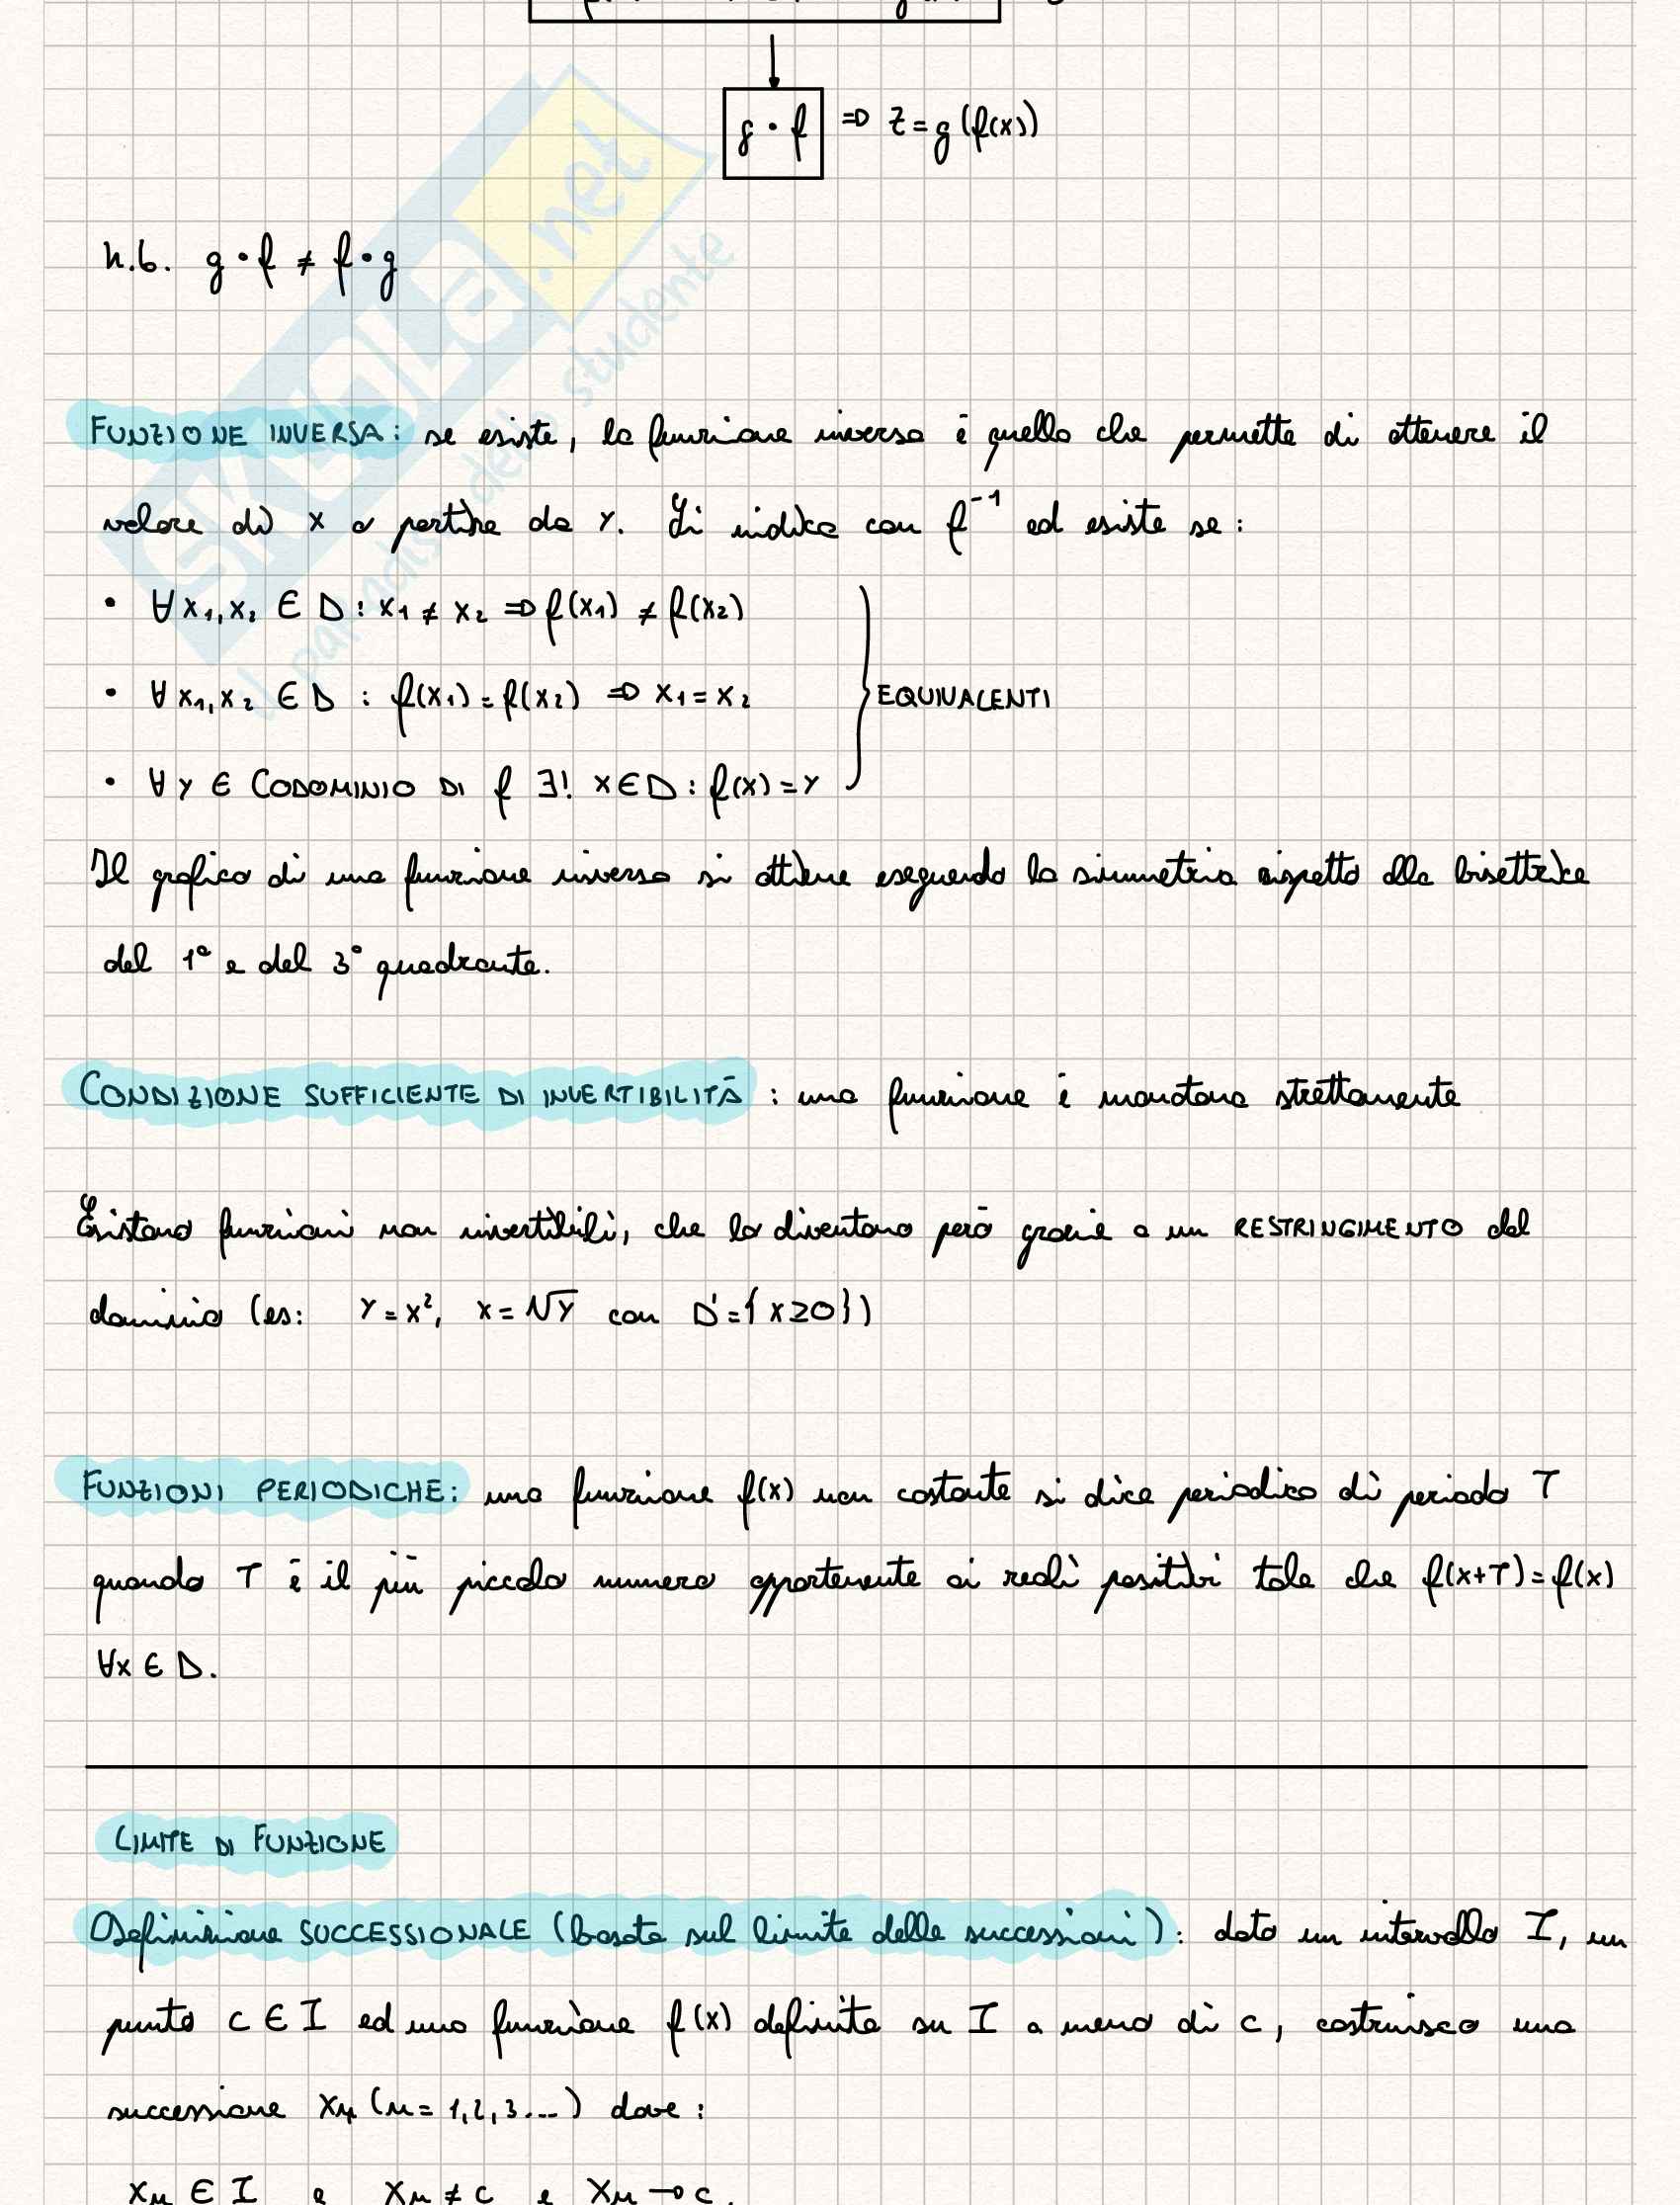 g • f ⇒ z = g(f(x))
n.b. g • f ≠ f • g
FUNZIONE INVERSA: se esiste, la funzione inversa è quella che permette di ottenere il
valore di x a partire da y. Si indica con f⁻¹ ed esiste se:
• ∀ x₁, x₂ ∈ D : x₁ ≠ x₂ ⇒ f(x₁) ≠ f(x₂)
• ∀ x₁, x₂ ∈ D : f(x₁) = f(x₂) ⇒ x₁ = x₂
EQUIVALENTI
• ∀ y ∈ CODOMINIO DI f ∃! x ∈ D : f(x) = y
Il grafico di una funzione inversa si ottiene eseguendo la simmetria rispetto alla bisettrice
del 1° e del 3° quadrante.
CONDIZIONE SUFFICIENTE DI INVERTIBILITÀ : una funzione è monotona strettamente
Esistono funzioni non invertibili, che lo diventano però grazie a un RESTRINGIMENTO del
dominio (es: y = x², x = √y con D' = {x ≥ 0})
FUNZIONI PERIODICHE: una funzione f(x) non costante si dice periodica di periodo T
quando T è il più piccolo numero appartenente ai reali positivi tale che f(x+T) = f(x)
∀x ∈ D.
LIMITE DI FUNZIONE
Definizione SUCCESSIONALE (basata sul limite delle successioni): dato un intervallo I, un
punto c ∈ I ed una funzione f(x) definita su I a meno di c, costruisco una
successione xₙ (n = 1, 2, 3...) dove:
xₙ ∈ I e xₙ ≠ c e xₙ → c.
SKUOLA.net
il paradiso dello studente